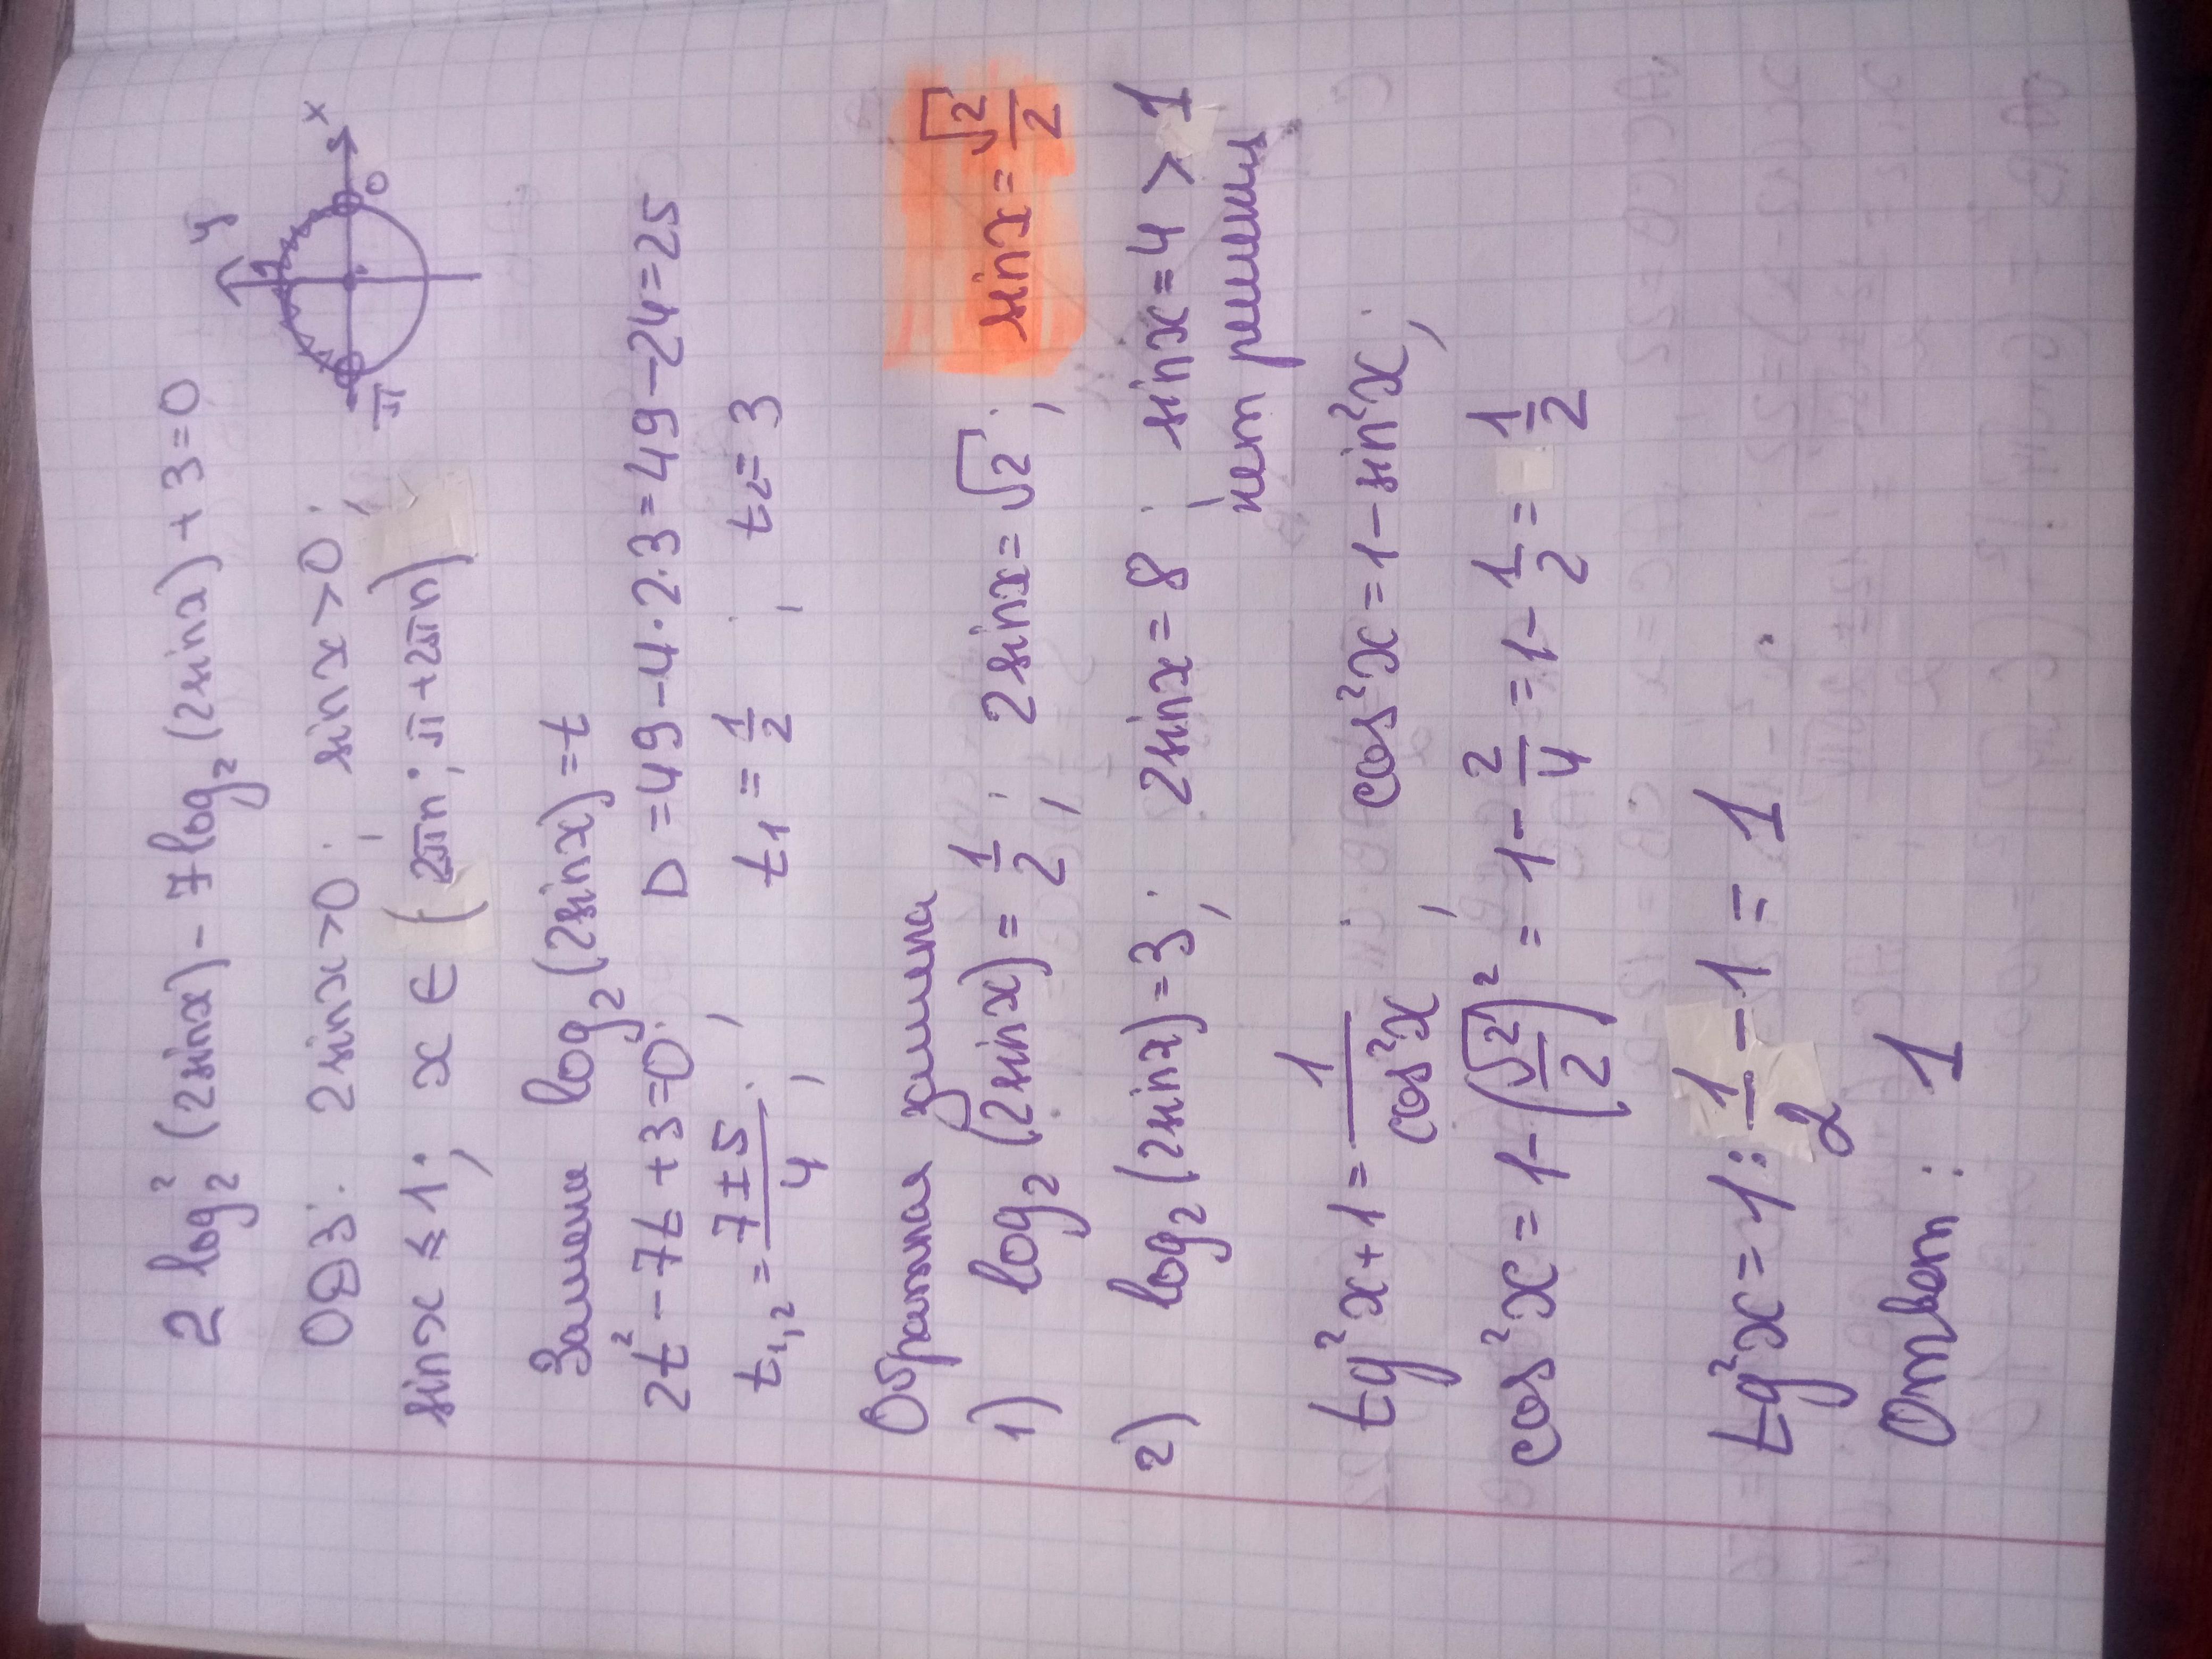 2 log₂² (2sinx) - 7log₂ (2sinx) + 3 = 0
y
1
x
π
0
ОДЗ: 2sinx > 0; sinx > 0;
sinx ≤ 1; x ∈ (2πn; π + 2πn)
Замена log₂ (2sinx) = t
2t² - 7t + 3 = 0; D = 49 - 4·2·3 = 49 - 24 = 25
t₁,₂ = (7±5)/4; t₁ = 1/2; t₂ = 3
Обратная замена
1) log₂ (2sinx) = 1/2; 2sinx = √2; sinx = √2/2
2) log₂ (2sinx) = 3; 2sinx = 8; sinx = 4 > 1
нет решения
tg²x + 1 = 1/cos²x; cos²x = 1 - sin²x;
cos²x = 1 - (√2/2)² = 1 - 2/4 = 1 - 1/2 = 1/2
tg²x = 1 : 1/2 - 1 = 1
Ответ: 1